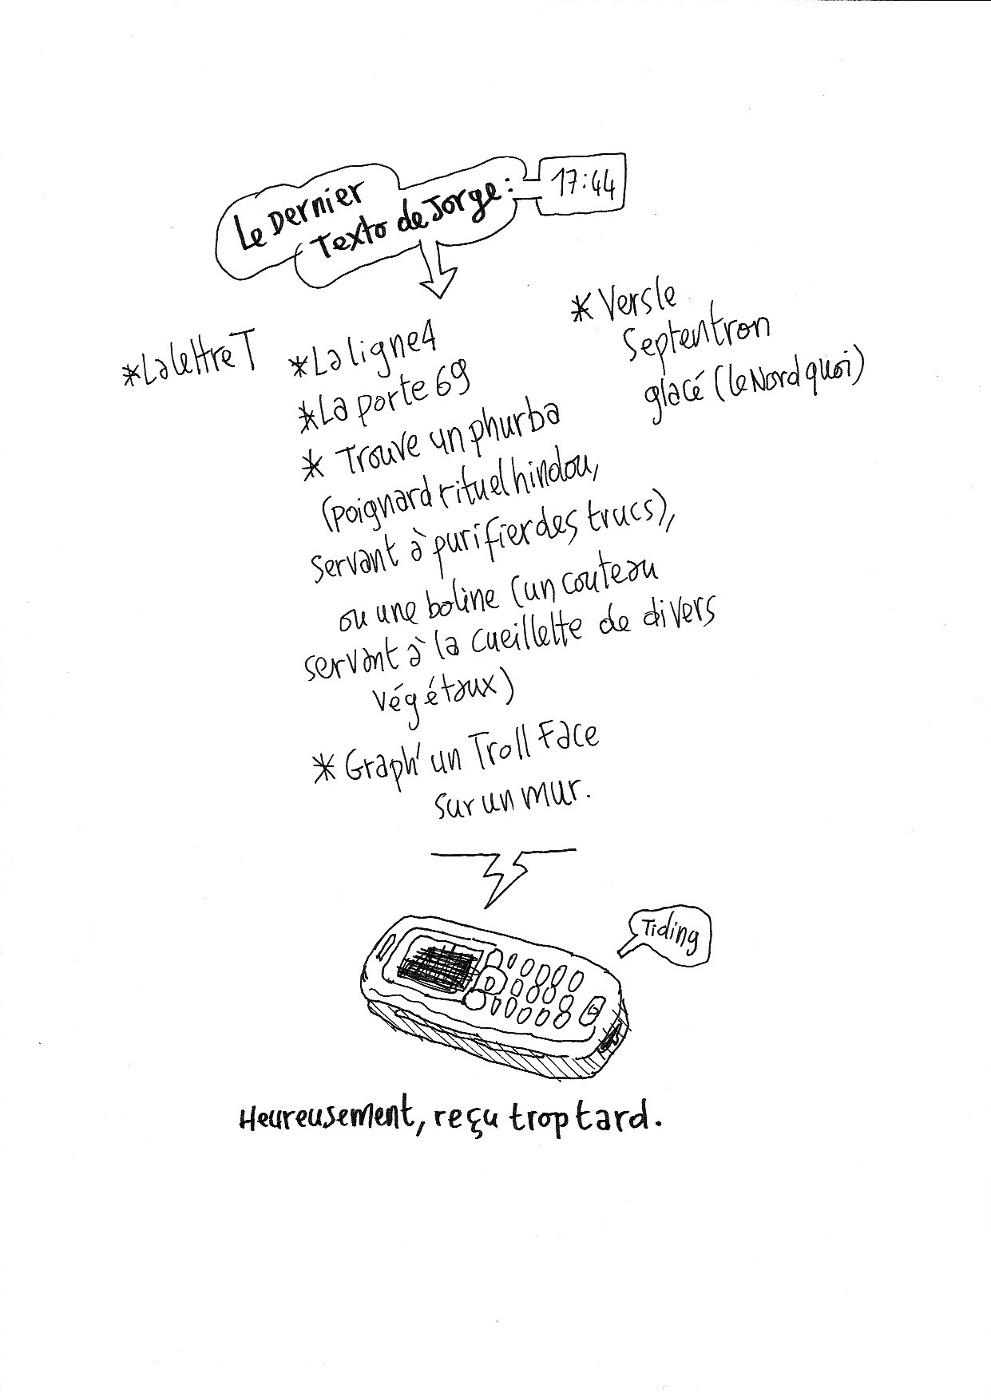 Le Dernier
Texto de Jorge:
17:44
*La lettre T
*La ligne 4
*La porte 69
* Trouve un phurba
(poignard rituel hindou,
servant à purifier des trucs),
ou une boline (un couteau
servant à la cueillette de divers
végétaux)
* Graph' un Troll Face
sur un mur.
* Vers le
Septentron
glacé (le Nord quoi)
Tiding
Heureusement, reçu trop tard.